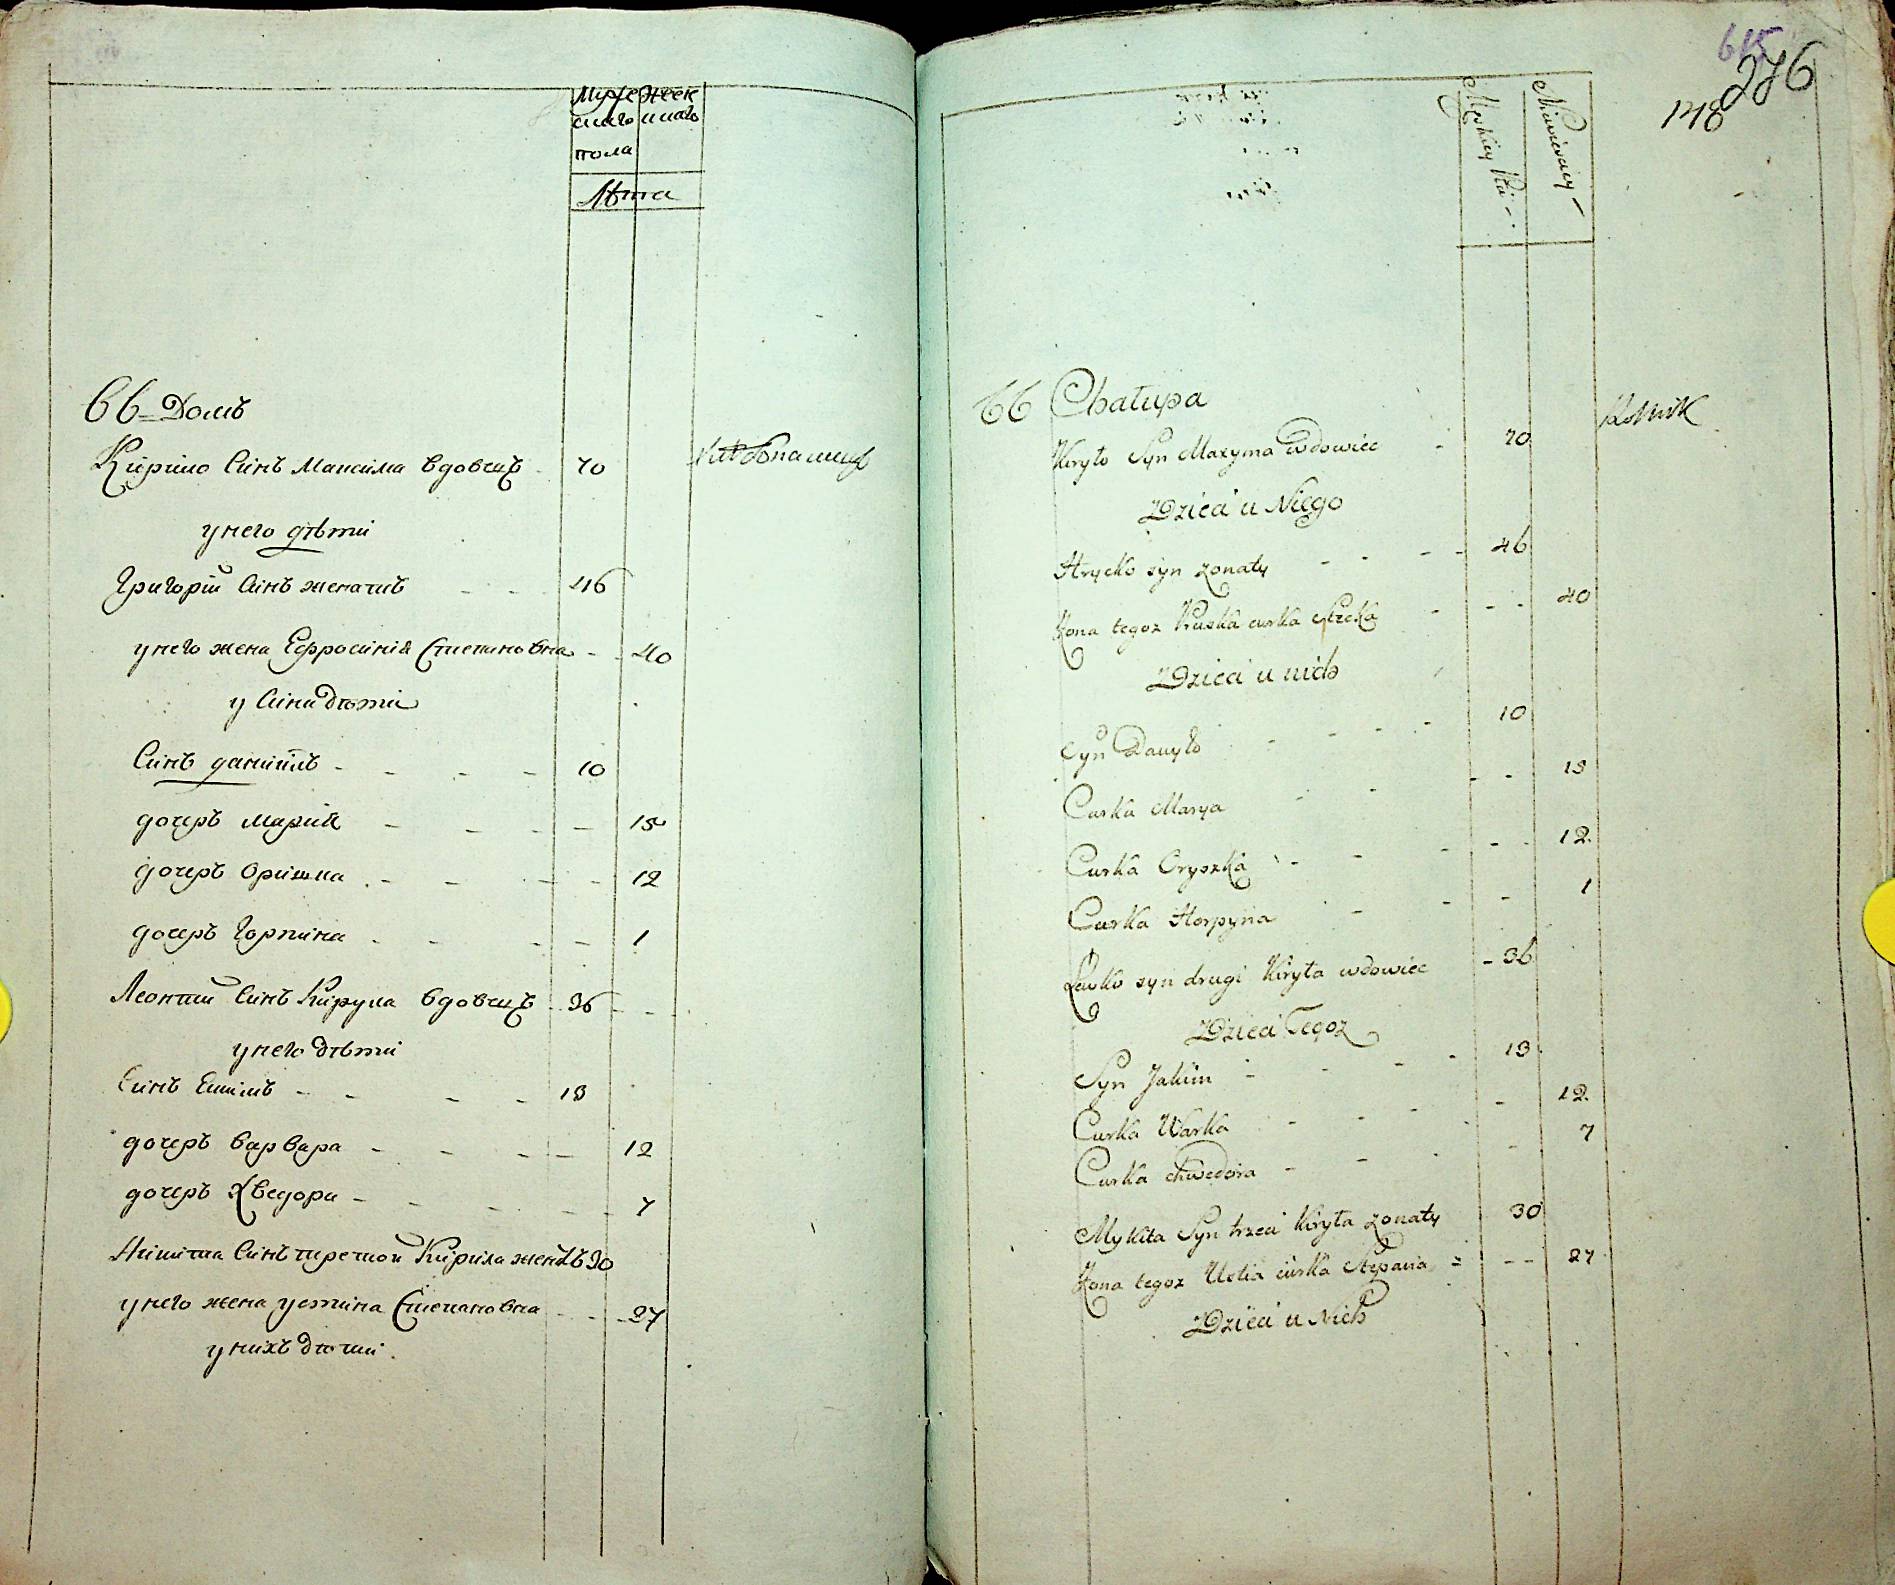 Муже Женс
скаго скаго
пола
Лѣта
66 Домъ
Кирило Синъ Максима вдовецъ - 70
у него дѣти
Григорій Синъ женатъ - - 46
у него жена Ефросинія Степановна - - 40
у Сина дѣти
Синъ даніилъ - - - - 10
дочеръ Марія - - - - 15
дочеръ Оришка - - - - 12
дочеръ Горпина - - - - 1
Леонтій Синъ Кирула вдовецъ - 36 - - -
у него дѣти
Синъ Екимъ - - - - 13
дочеръ Варвара - - - - 12
дочеръ Хведора - - - - - 7
Никита Синъ третой Кирила 30
у него жена устина Степановна - - - 27
у нихъ дѣти
615
276
148
Męskiey Płci
Niewiesciey
66 Chałupa
Rolnik
Kiryło Syn Maxyma Wdowiec - 70
Dzieci u Niego
Hrycko syn żonaty - - - - 46
Żona tegoz Pruska curka - - - 40
Dzieci u nich
Syn Danyło - - - - 10
Curka Marya - - - - 15
Curka Oryszka - - - - - 12
Curka Horpyna - - - 1
Lewko syn drugi Kiryła wdowiec - 36
Dzieci Tegoz
Syn Jakim - - - - 13
Curka Warka - - - - 12
Curka Chwedora - - - - 7
Mykita Syn trzeci Kiryła żonaty 30
Żona tegoz Ustia curka Stepana - - - 27
Dzieci u Nich